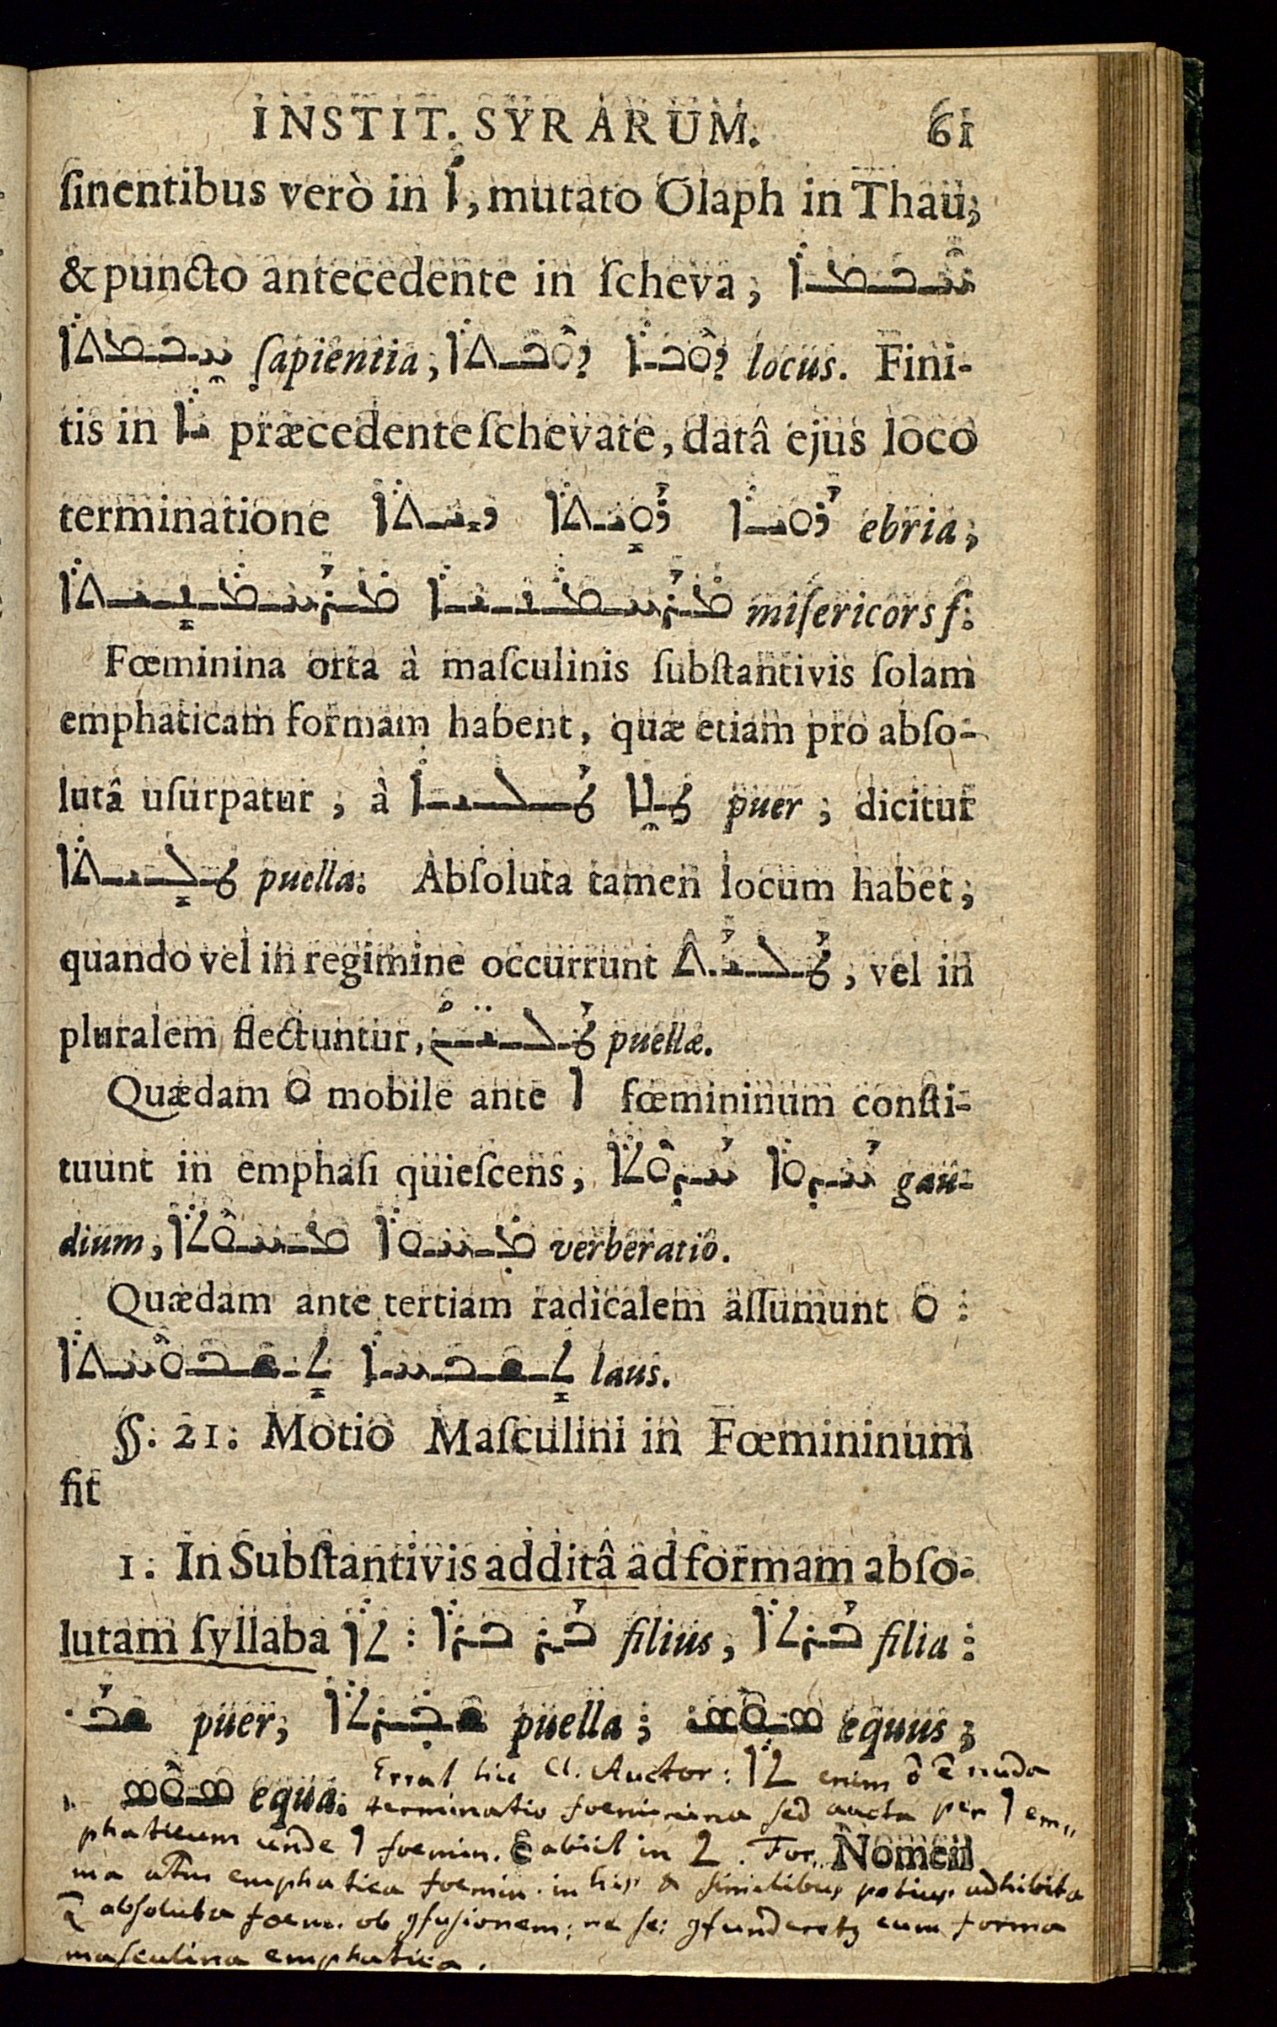 INSTIT. SYRARUM. 61
ſinentibus verò in ܐ, mutato Olaph in Thau;
& puncto antecedente in ſcheva; ܚܟܡܐ
ܚܟܡܬܐ ſapientia; ܕܘܟܬܐ ܕܘܟܐ locus. Fini-
tis in ܢܐ præcedente ſchevate, datâ ejus loco
terminatione ܪܘܝܬܐ ܪܘܝܐ ebria;
ܡܪܚܡܢܝܬܐ ܡܪܚܡܢܝܐ miſericors f:
Fœminina orta à maſculinis ſubſtantivis ſolam
emphaticam formam habent, quæ etiam pro abſo-
lutâ uſurpatur, à ܥܠܝܡܐ puer; dicitur
ܥܠܝܡܬܐ puella: Abſoluta tamen locum habet;
quando vel in regimine occurrunt, vel in
pluralem flectuntur, puellæ.
Quædam ܘ mobile ante ܐ fœmininum conſti-
tuunt in emphaſi quieſcens, ܚܕܘܬܐ ܚܕܘܐ gau-
dium, ܡܚܘܬܐ ܡܚܘܐ verberatio.
Quædam ante tertiam radicalem aſſumunt ܘ :
ܬܫܒܘܚܬܐ ܬܫܒܚܐ laus.
§. 21: Motio Maſculini in Fœmininum
fit
1: In Subſtantivis additâ ad formam abſo-
lutam ſyllaba ܬܐ : ܒܪܐ ܒܪ filius, ܒܪܬܐ filia :
puer; puella; ܣܘܣܝ equus;
equa: Errat hic Cl. Auctor: ܬܐ enim nuda
terminatio foeminina sed aucta per ܐ em-
phaticum unde ܐ foemin. abiit in ܬ. For- Nomen
ma emphatica foemin. in his & similibus potius adhibita
absoluta foem. ob ꝯfusionem; ne ꝯfunderetur cum forma
masculina emphatica.